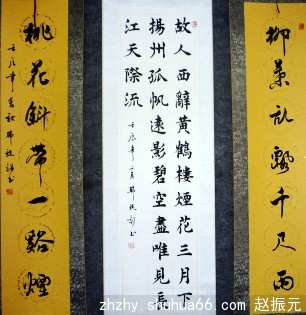 柳葉亂飄千尺雨
故人西辭黃鶴樓煙花三月下
揚州孤帆遠影碧空盡唯見長
江天際流
壬辰年
桃花斜帶一谿煙
壬辰年
zhzhy.shuhua66.com 赵振元